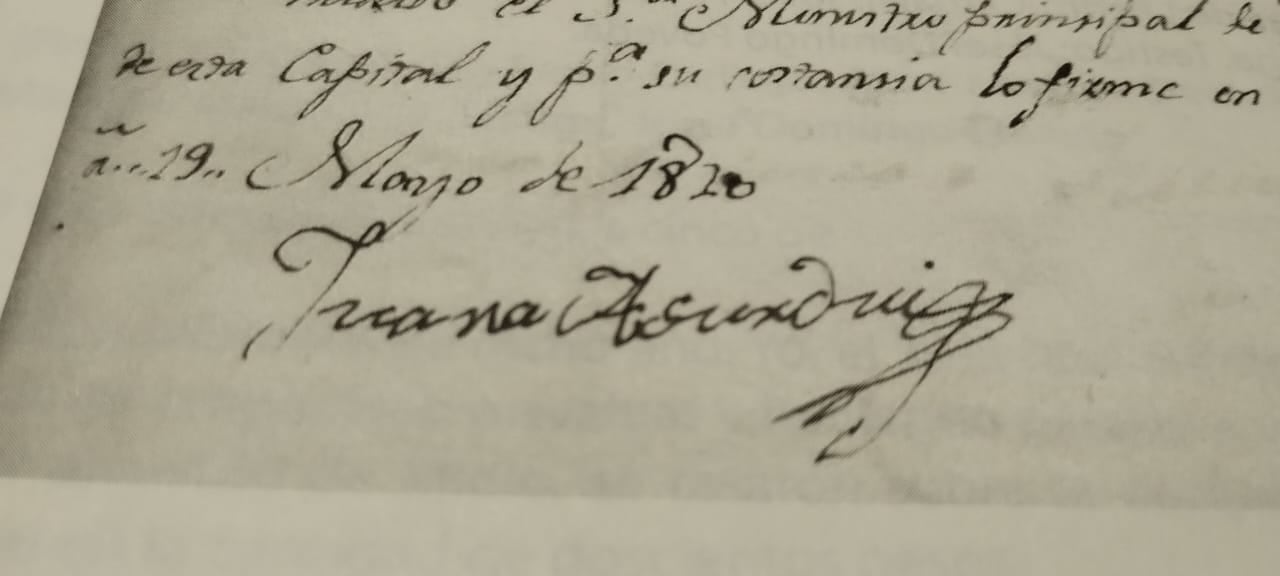 el S.ᵒʳ Ministro prinsipal de
de esta Capital y p.ª su costansia lo firme en
19.. Marzo de 1820
Juana Asurdui